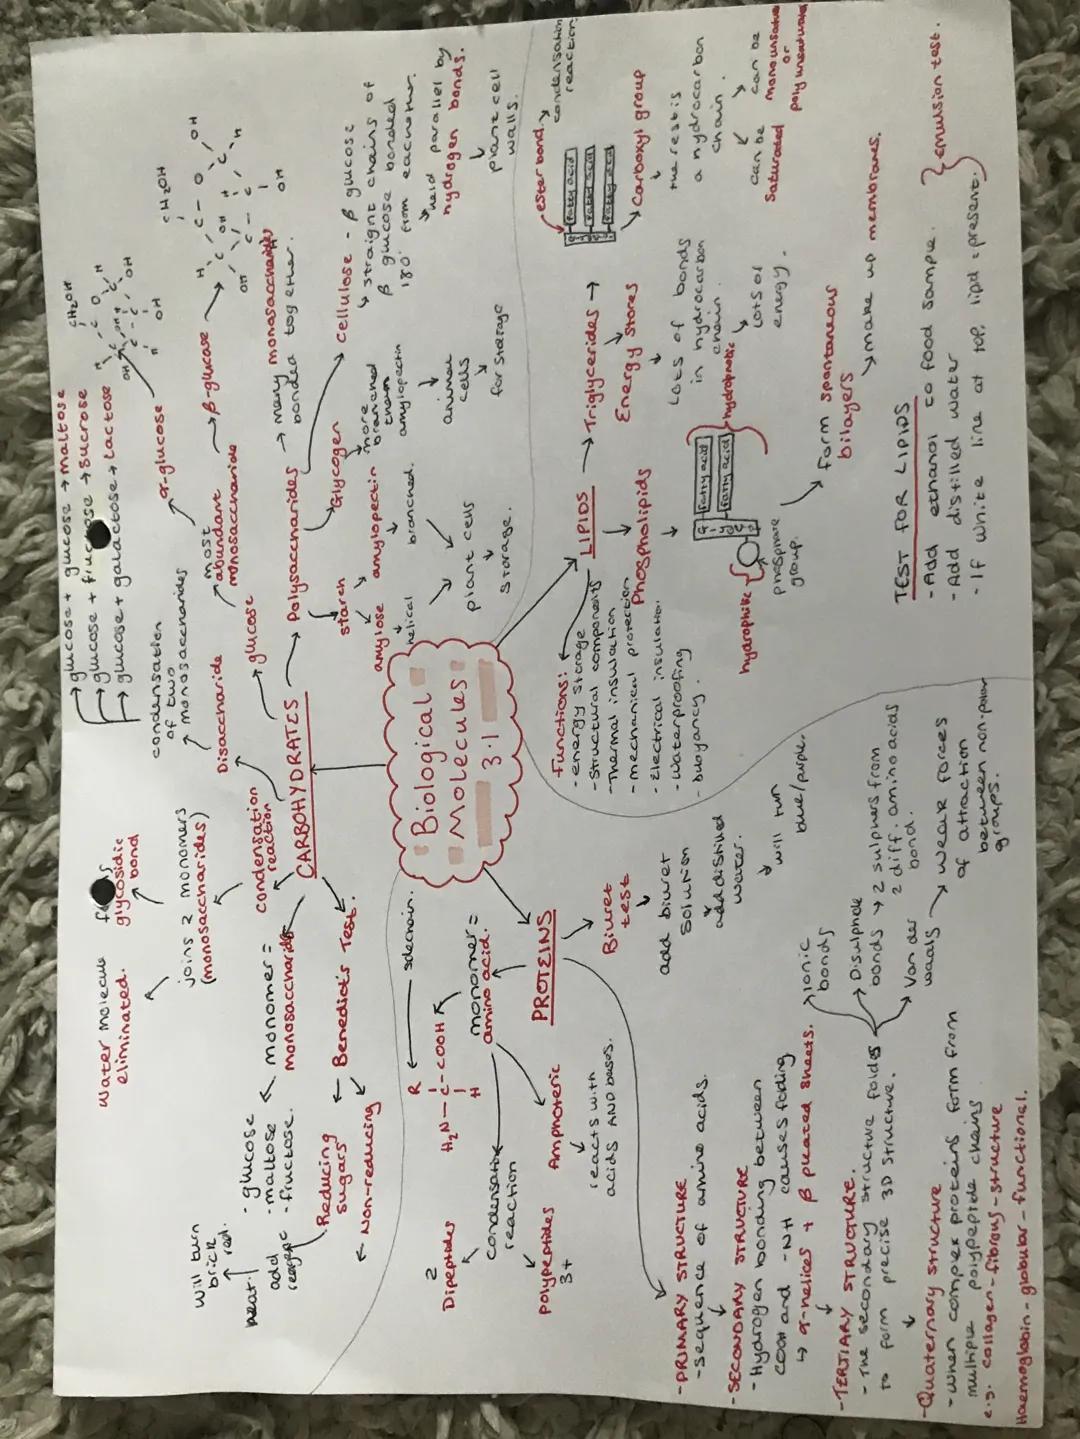 Biological
Molecules
3.1
CARBOHYDRATES
monomer =
monosaccharide
condensation
reaction
joins 2 monomers
(monosaccharides)
glycosidic
bond
water molecule
eliminated.
Disaccharide
condensation
of two
monosaccharides
glucose + glucose → maltose
glucose + fructose → sucrose
glucose + galactose → lactose
glucose
most
abundant
monosaccharide
α-glucose
β-glucose
CH₂OH
CH₂OH
Polysaccharides → many monosaccharides
bonded together.
starch
amylose
helical
amylopectin
branched.
plant cells
storage.
Glycogen
more
branched
than
amylopectin
animal
cells
for storage
Cellulose - β glucose
↳ straight chains of
β glucose bonded
180° from eachother.
held parallel by
hydrogen bonds.
plant cell
walls.
Benedict's Test.
Reducing
sugars
- glucose
- maltose
- fructose.
add
heat
will turn
brick
red.
Non-reducing
LIPIDS
Functions:
- energy storage
- Structural components
- Thermal insulation
- mechanical protection
- Electrical insulation
- waterproofing
- buoyancy.
Triglycerides →
Energy Stores
Lots of bonds
in hydrocarbon
chain.
Lots of
energy.
ester bond.
condensation
reaction
fatty acid
fatty acid
fatty acid
Carboxyl group
the rest is
a hydrocarbon
chain.
can be
saturated
can be
monounsaturated
or
polyunsaturated
Phospholipids
fatty acid
fatty acid
hydrophobic
hydrophilic
phosphate
group.
form spontaneous
bilayers
make up membranes.
TEST FOR LIPIDS
- Add ethanol to food sample.
- Add distilled water
- If white line at top, lipid = present.
emulsion test.
PROTEINS
monomer =
amino acid.
R
sidechain.
H₂N – C – COOH
H
Amphoteric
reacts with
acids AND bases.
condensation
reaction
2
Dipeptides
polypeptides
3+
Biuret
test
add biuret
solution
add distilled
water.
will turn
blue/purple.
- PRIMARY STRUCTURE
- sequence of amino acids.
- SECONDARY STRUCTURE
- Hydrogen bonding between
COOH and -NH causes folding
↳ α-helices + β pleated sheets.
- TERTIARY STRUCTURE.
- The secondary structure folds
to form precise 3D structure.
Ionic
bonds
Disulphide
bonds → 2 sulphurs from
2 diff. amino acids
bond.
Van der
waals → weak forces
of attraction
between non-polar
groups.
- Quaternary structure
- when complex proteins form from
multiple polypeptide chains
e.g. collagen - fibrous - structure
Haemoglobin - globular - functional.